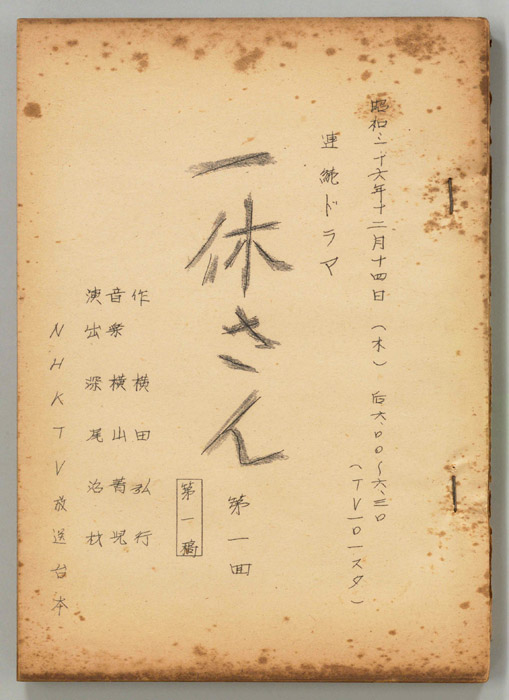 昭和三十六年十二月十四日（木）后六、〇〇〜六、三〇
（TV一〇一スタ）
連続ドラマ
一休さん
第一回
第一稿
作 横田弘行
音楽 横山菁児
演出 深尾
NHKTV放送台本